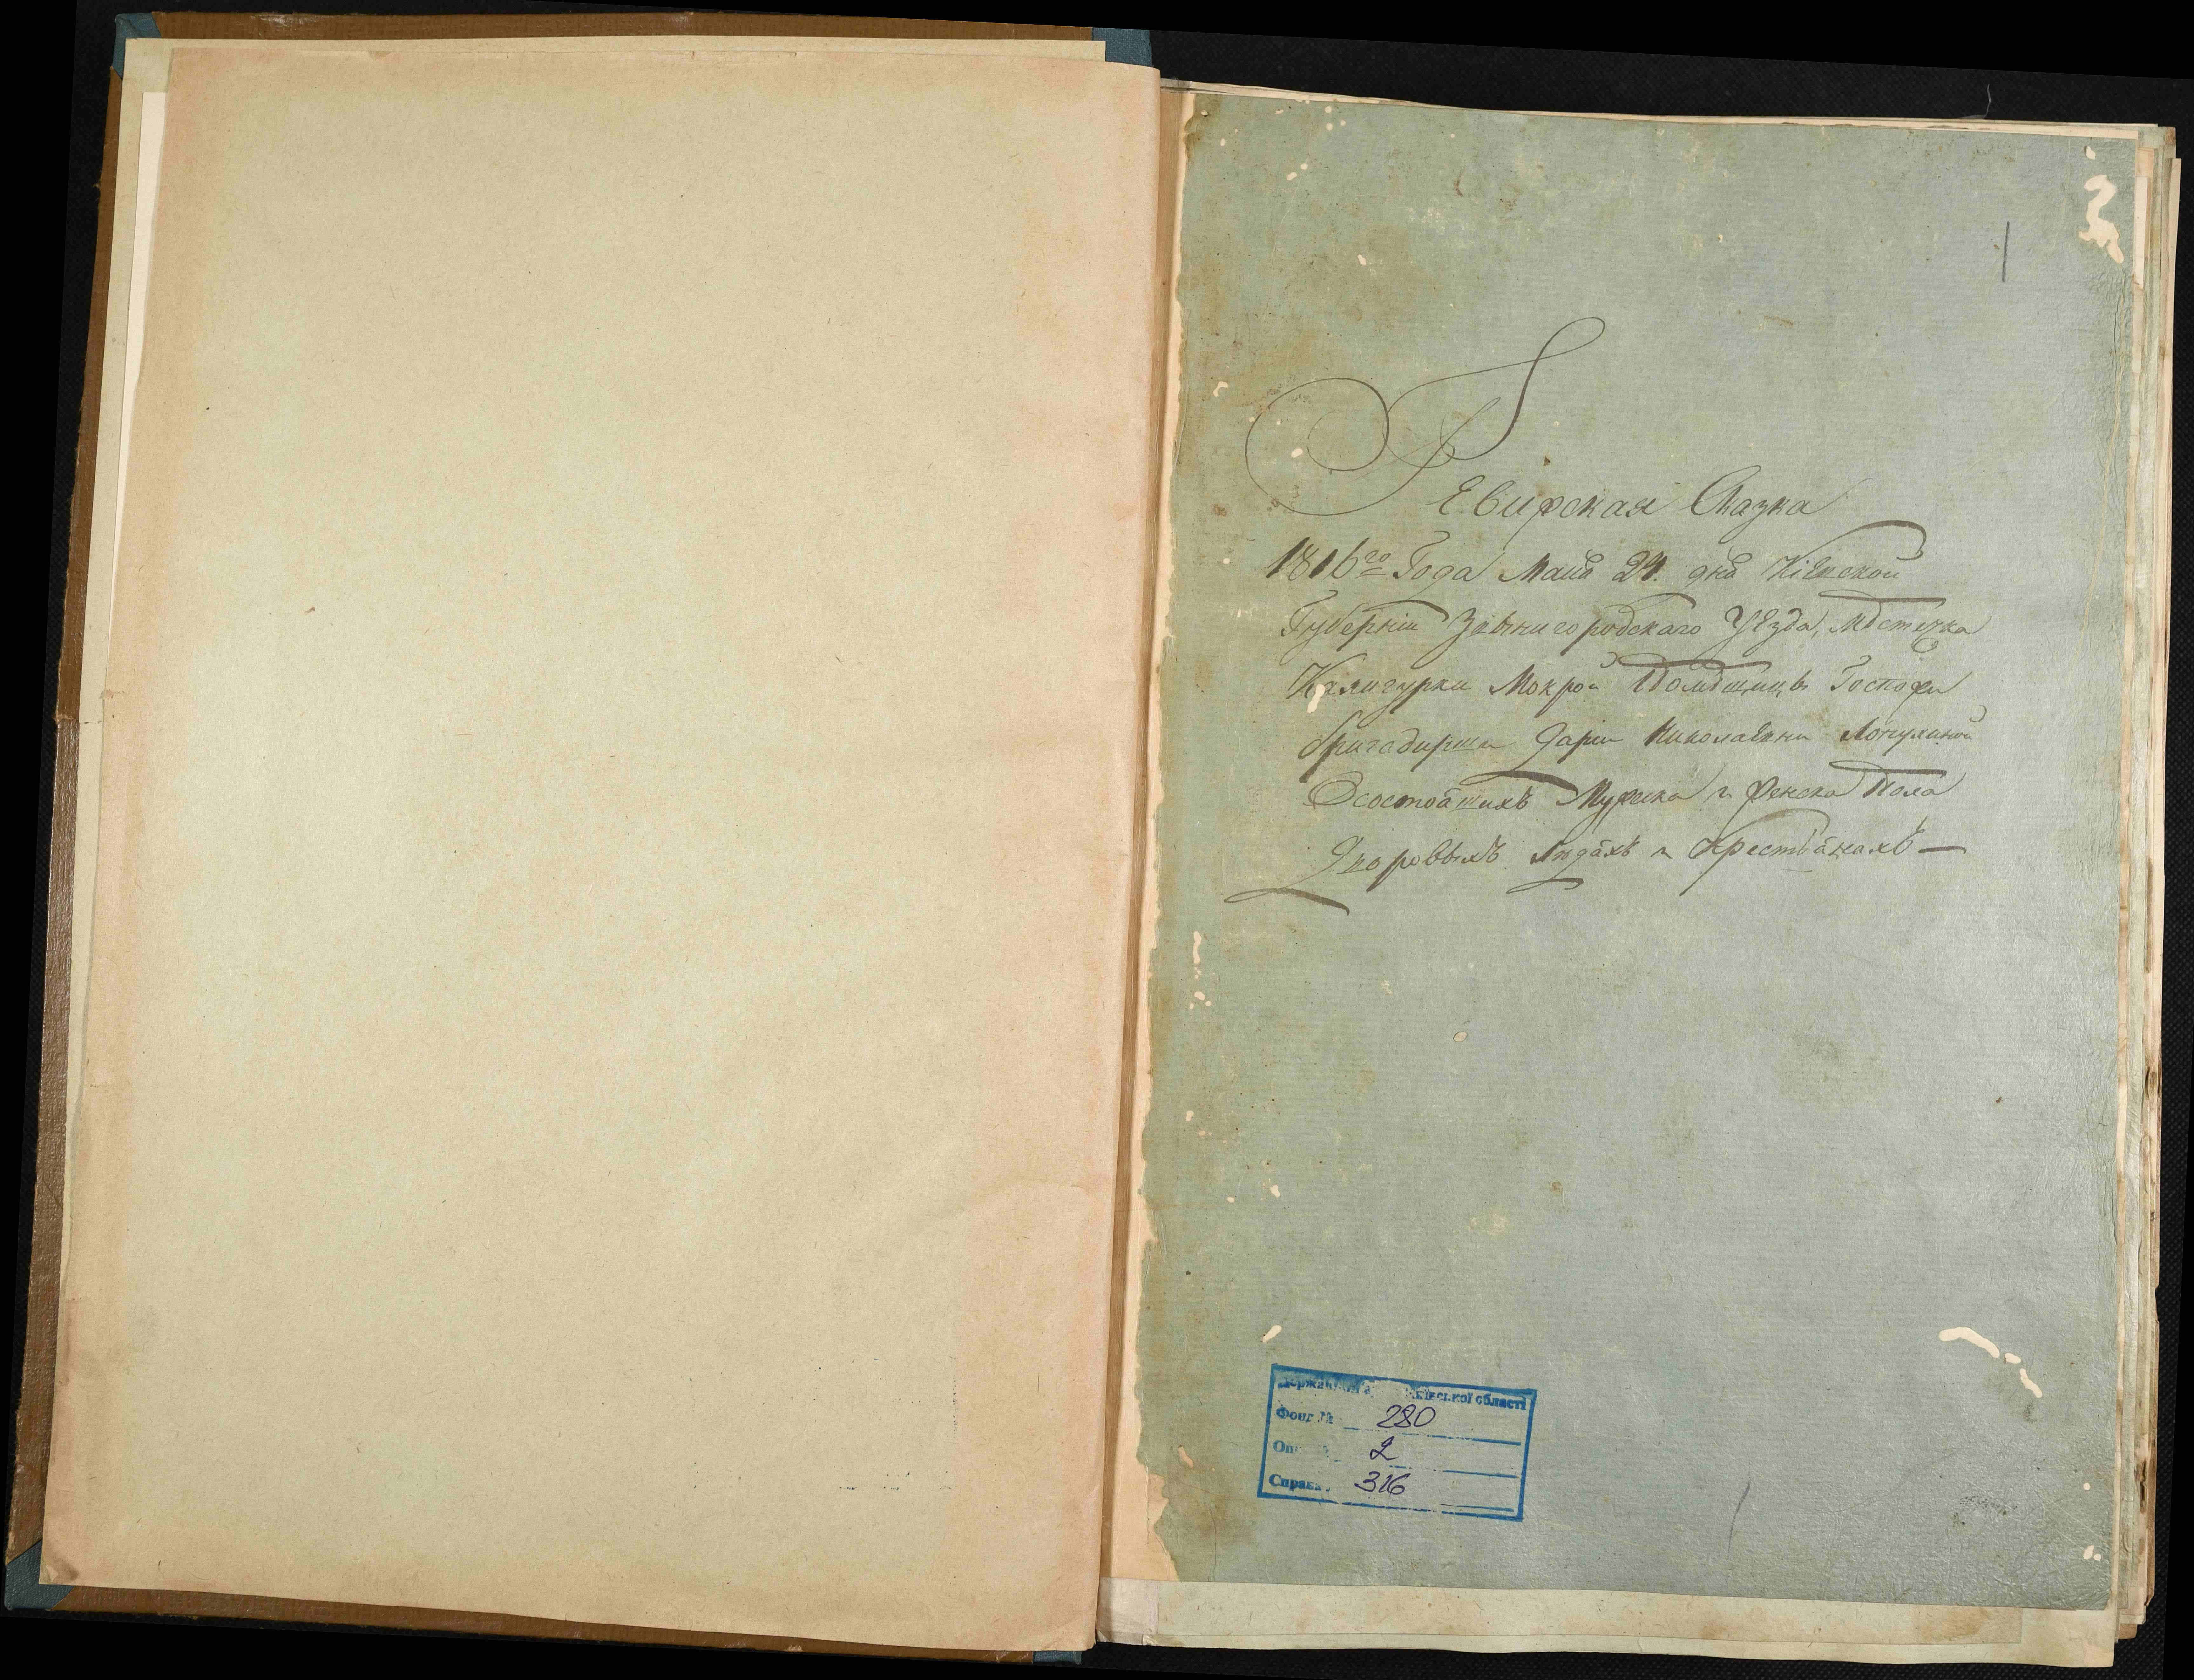 1
Ревирская Сказка
1816го Года Маия 24. дня Кіевской
Губерніи Звенигородскаго Уезда, Местечка
Калигурки Мокрой Помещицы Госпожи
бригадирши Дарии Николаевни Лопухиной
О состоящихъ Мужска и женска Пола
Дворовыхъ Людяхъ и Крестьянахъ —
Державний а кївської області
Фонд № 280
Оп 2
Справа 316